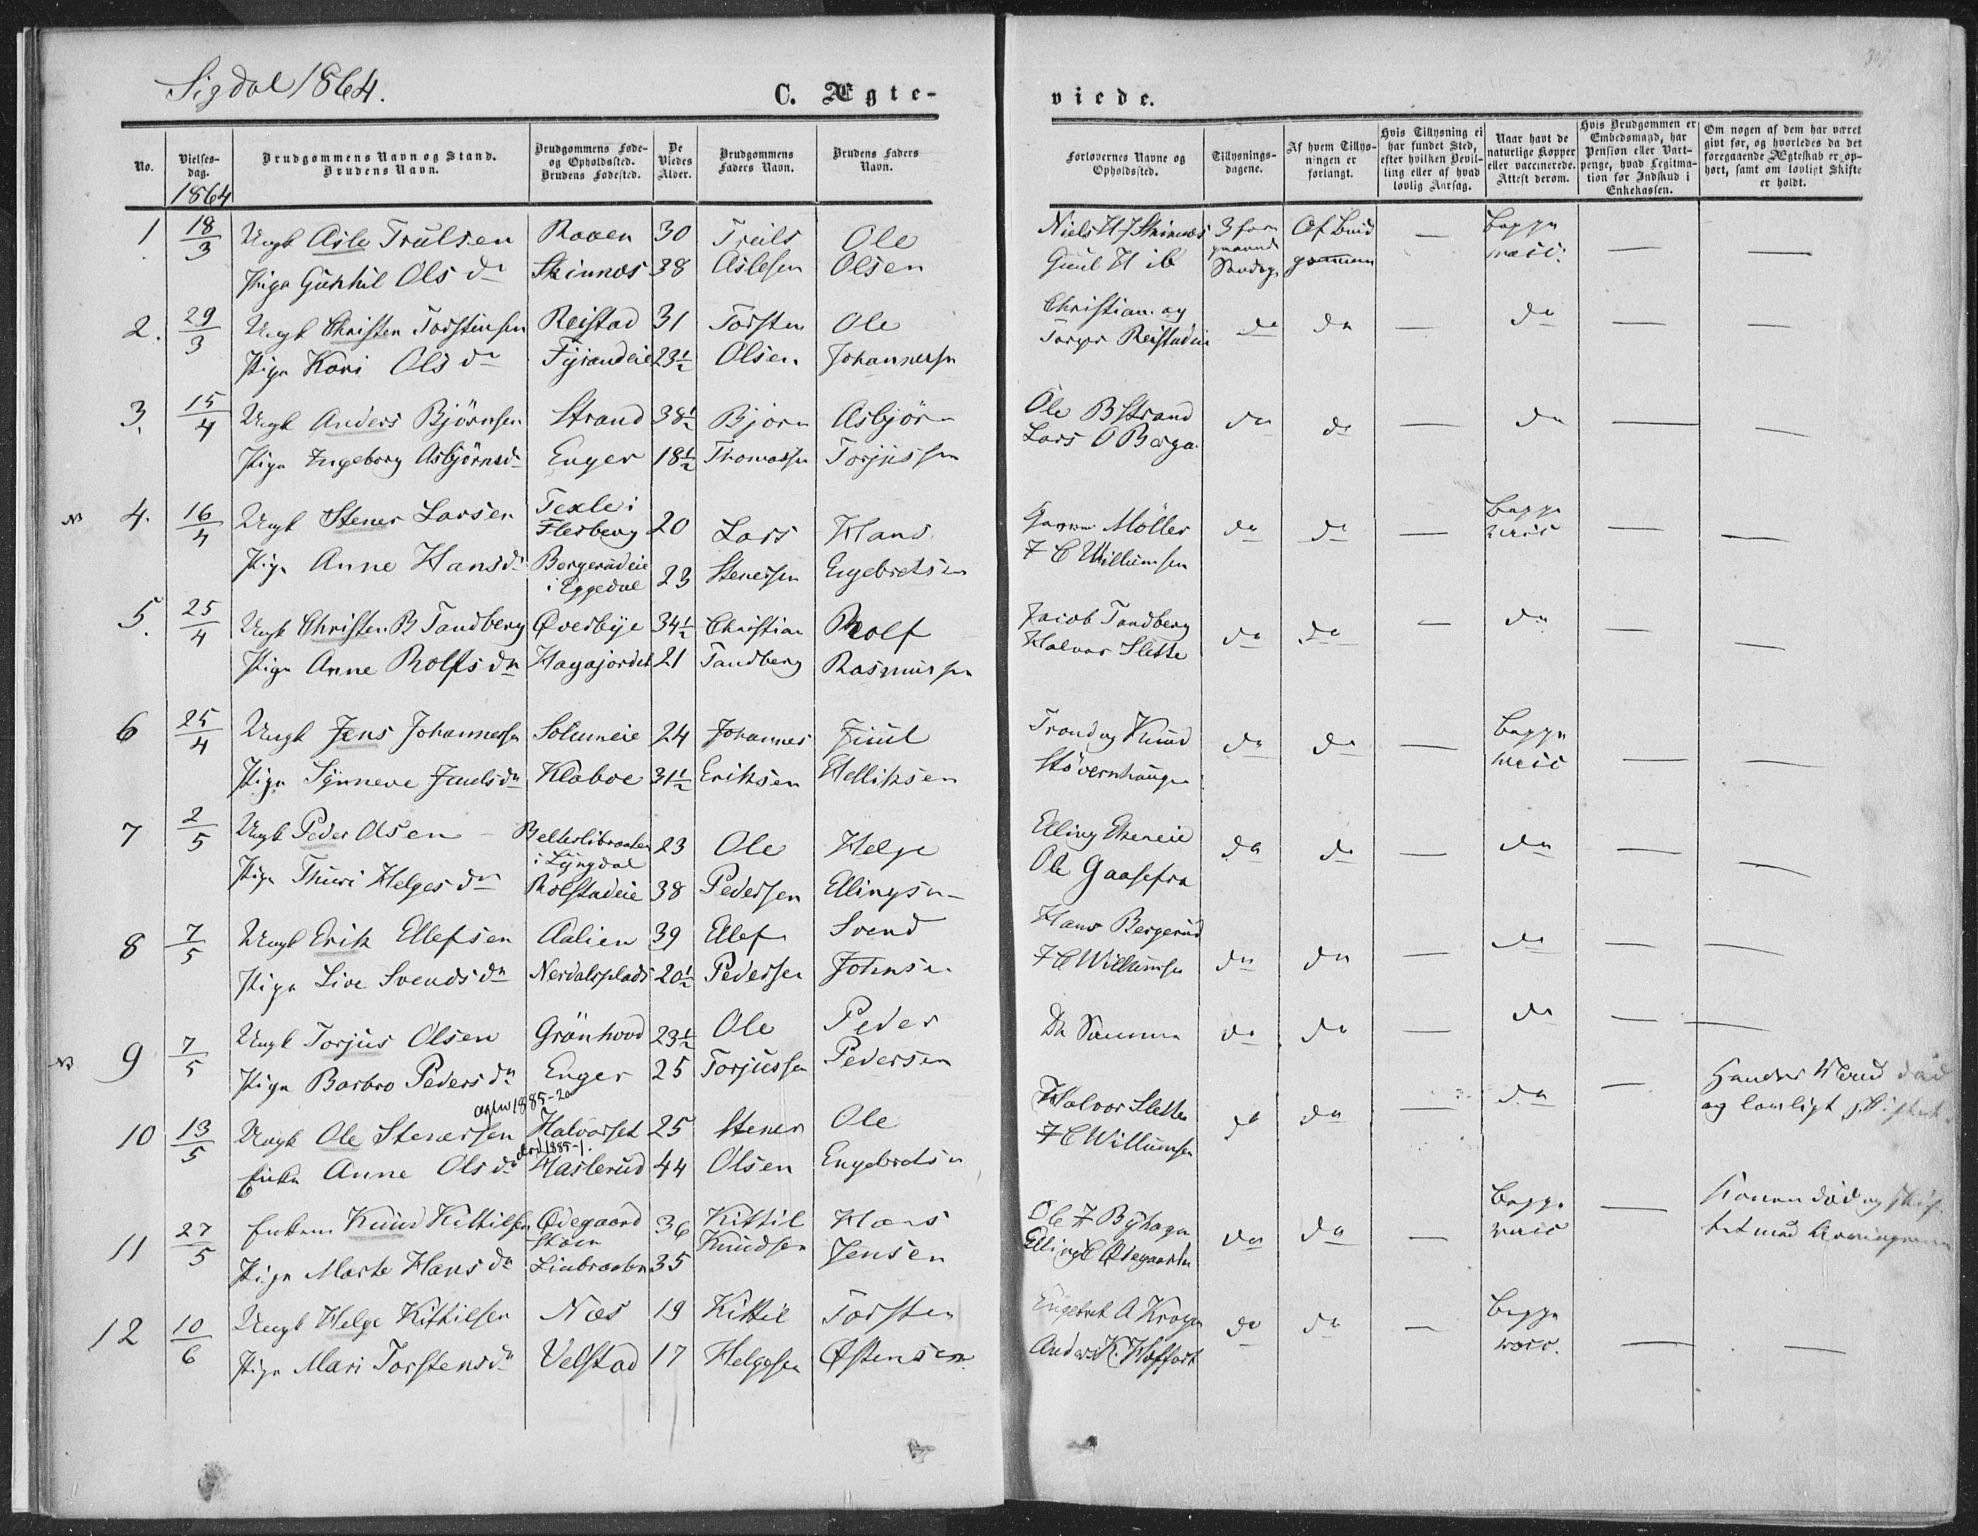 Sigdal 1864.
C. Ægte-
viede.
No.
Vielses-
dag.
1864
Brudgommens Navn og Stand.
Brudens Navn.
Brudgommens Føde-
og Opholdssted.
Brudens Fødested.
De
Viedes
Alder.
Brudgommens
Faders Navn.
Brudens Faders
Navn.
Forlovernes Navne og
Opholdssted.
Tillysnings-
dagene.
Af hvem Tillys-
ningen er
forlangt.
Hvis Tillysning ei
har fundet Sted,
efter hvilken Bevil-
ling eller af hvad
lovlig Aarsag.
Naar havt de
naturlige Kopper
eller vaccinerede.
Attest derom.
Hvis Brudgommen er
Embedsmand, har
Pension eller Vart-
penge, hvad Legitima-
tion for Indskud i
Enkekassen.
Om nogen af dem har været
givt før, og hvorledes da det
foregaaende Ægteskab er op-
hørt, samt om lovligt Skifte
er holdt.
1 18/3 Ungk Asle Trulsen Raaen 30 Truls Ole Niels H Skinnes 3 Af Brud — Begge — —
Pige Gunhil Ols d. Skinnes 38 Aslesen Olsen Guul H ib Søndage gommen vacc.
2. 29/3 Ungk Christen Torstensen Reistad 31 Torsten Ole Christian og do do — do — —
Pige Kari Ols d. Fyrandeie 23½ Olsen Johannessen Torger Reistadeie
3. 15/4 Ungk Anders Bjørnsen Strand 38½ Bjørn Asbjørn Ole B Strand do do — do — —
Pige Ingeborg Asbjørnsd. Enger 18½ Thomassen Torjussen Lars O Berga
N 4. 16/4 Ungk Stener Larsen Texle i Flesberg 20 Lars Hans Møller do do — Begge vacc — —
Pige Anne Hansd. Bergerudeie i Eggedal 23 Stenersen Engebretsen F C Willumsen
5. 25/4 Ungk Christen B Tandberg Øverbye 34½ Christian Rolf Jacob Tandberg do do — do — —
Pige Anne Rolfsd. Hagajordet 21 Tandberg Rasmussen Halvor Slette
6 25/4 Ungk Jens Johannessen Solumeie 24 Johannes Juul Trond og Knud do do — Begge vacc — —
Pige Synneve Juulsd. Kloboe 31½ Eriksen Helliksen Støvernhaugen
7 2/5 Ungk Peder Olsen – Belteslibraaten i Lyngdal 23 Ole Helge Elling do do — do — —
Pige Thuri Helges d. Rolfstadeie 38 Pedersen Ellingsen Ole Gaasefra
8 7/5 Ungk Erik Ellefsen Aalien 39 Ellef Svend Hans Bergerud do do — do — —
Pige Live Svendsd. Nerdalsplads 20½ Pedersen Johnsen F C Willumsen
N 9 7/5 Ungk Torjus Olsen Grønhovd 23½ Ole Peder De Samme do do — do — —
Pige Barbro Pedersd. Enger 25 Torjussen Pedersen
1885-20
10 13/5 Ungk Ole Stenersen Halvorset 25 Stener Ole Halvor Slette do do — do — Hendes Mand død
1885-1.
Enke Anne Olsd. Haslerud 44 Olsen Engebretsen F C Willumsen og lovligt skiftet
11 27/5 Enkem Knud Kittilsen Ødegaard 36 Kittil Hans Ole F Byhagen do do — Begge vacc — Konen død og skif-
Pige Marte Hansd. Liabraaten 35 Knudsen Jensen Elling Ødegaarden tet med
12 10/6 Ungk Helge Kittilsen Næs 19 Kittil Torsten Engebret A Kragen do do — Begge — —
Pige Mari Torstensd. Velstad 17 Helgesen Østensen Anders K. Hoffart vacc.